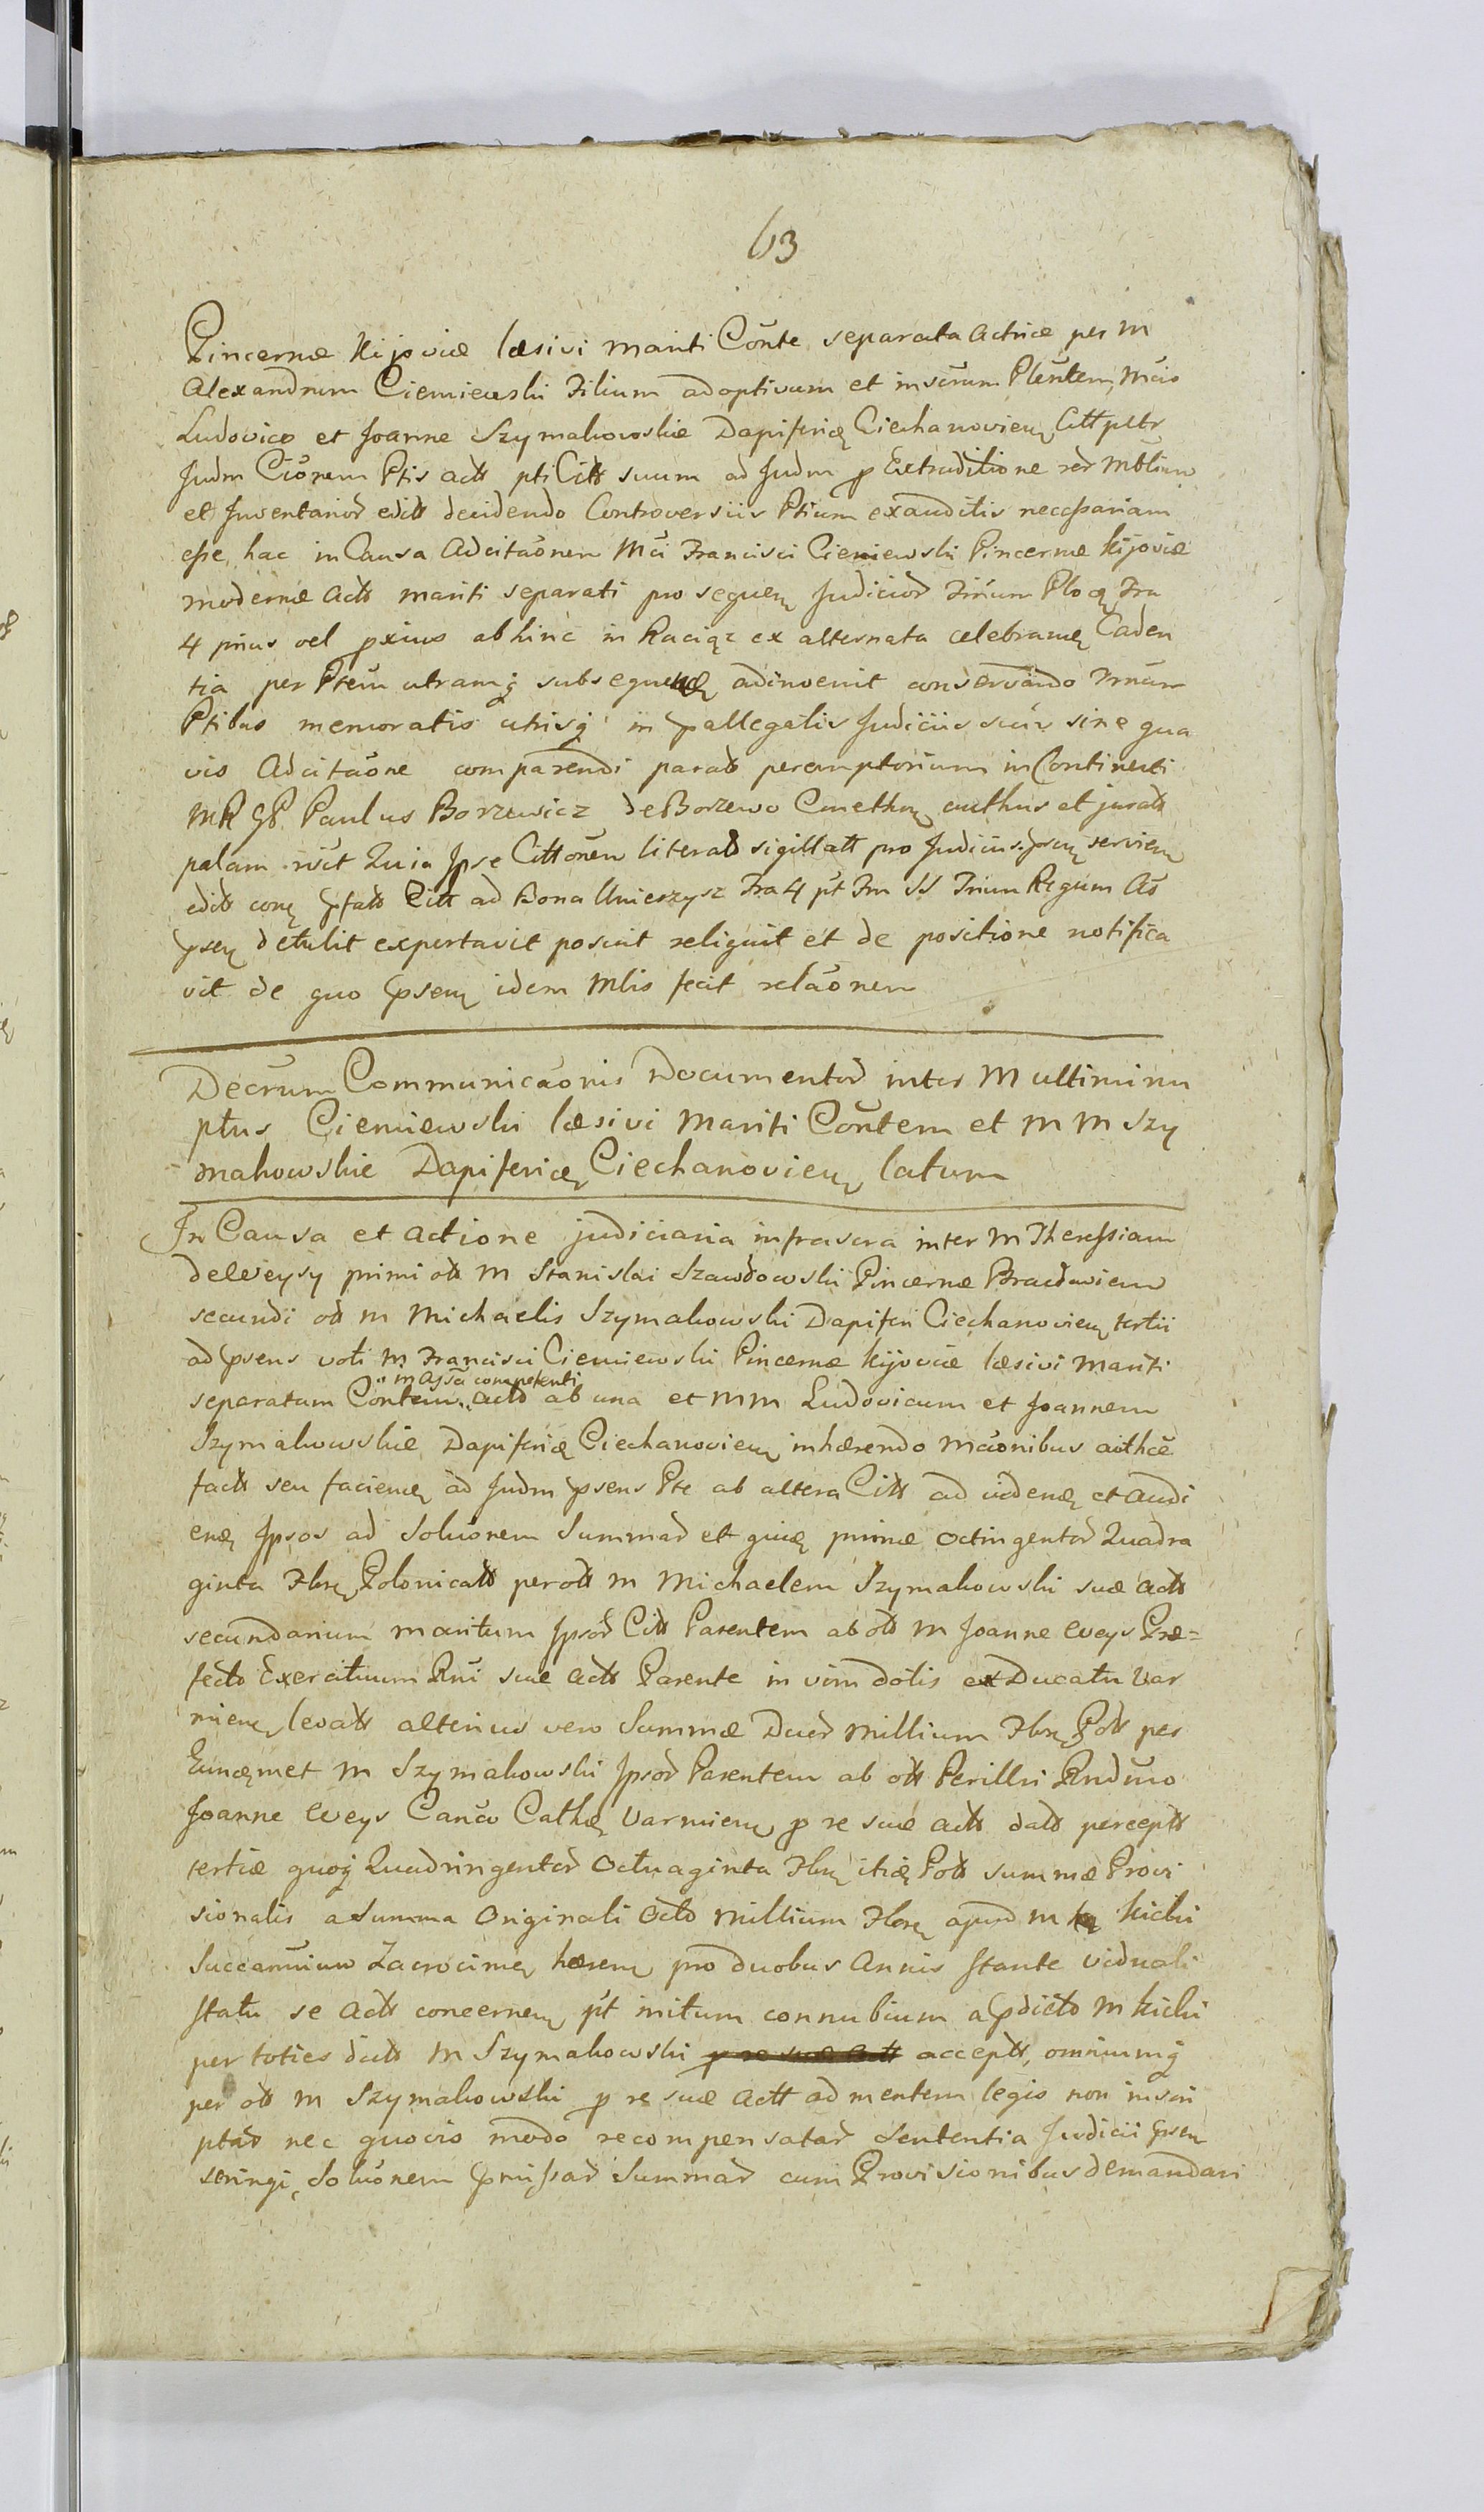 63
Pincernæ Kijoviæ læsivi mariti Cõnte separata actrice per M
Alexandrum Cieniewski Filium adoptivum et inscrum Plentem, Mcis
Ludovico et Joanne Szymakowskie Dapiferią Ciechanovien Citt pltr
Judm Cionem Ptis actt pti Citt suum ad Judm p Extraditione rer Mblium
et Inventarior edit decidendo Controversiis Ptium exauditis necessariam
esse hac in Causa Adcitaonem Mci Francisci Cieniewski Pincernæ Kijoviæ
modernæ Actt mariti separati pro sequen Judicior Trium Ploc Fra
4 prius vel pxius abhinc in Raciąz ex alternata celebran Caden
tia per Ptem utramq subsequen adinvenit conservando Trnum
Ptibus memoratis utrisq in pallegatis Judiciis suis sine qua
vis Adcitaone comparendi paratt peremptorium in Continenti
MR GP Paulus Borzewicz de Borzewo Cmethon authus et juratt
palam rsit Quia Ipse Cittonem literatt sigillatt pro Judiciis psen servien
editt con pfatt Citt ad Bona Unieszysz Fra 4 pt Fm SS Trium Regum Ao
psen detulit exportavit posuit reliquit et de positione notifica
vit de quo psen idem Mlis fecit relaonem
Decrum Communicaonis Documentor inter M ultimi nu
ptus Cieniewski læsivi Mariti Contem et M M Szy
makowskie Dapiferią Ciechanovien latum
In Causa et Actione judiciaria infrascra inter M Theressiam
de Weysy primi ott M Stanislai Szawdowski Pincernæ Bracłavien
secundi ott M Michaelis Szymakowski Dapiferi Ciechanovien tertii
ad psens voti M Francisci Cieniewski Pincernæ Kijoviæ læsivi Mariti
" in assa competenti
separatam Contem " actt ab una et MM Ludovicum et Joannem
Szymakowskie Dapiferią Ciechanovien inhærendo Mcionibus authcæ
factt seu facien ad Judm psens Pte ab altera Citt ad viden et audi
en Ipsos ad Soluonem Summar et quid primæ octingentor Quadra
ginta Flor Polonicatt per ott M Michaelem Szymakowski suæ actt
secundarium maritum Ipsor Citt Parentem ab ott M Joanne Weys Præ=
fecto Exercituum Rni suæ actt Parente in vim dotis ex Ducatu Var
mien levatt alterius vero Summæ Duor Millium Flor Pott per
Eundemet M Szymakowski Ipsor Parentem ab ott Perillri Rndmo
Joanne Weys Canco Cathed Varmien p re suæ actt datt perceptt
tertiæ quoq Quadringentor Octuaginta Flor itid Pott summæ Provi
sionalis a Summa Originali Octo Millium Flor apud M Kicki
Succamium Zacrocimen hæren pro duobus Annis stante viduali
statu se Actt concernen pt initum connubium a pdicto M Kicki
per toties dictt M Szymakowski p re suæ actt acceptt, omniumq
per ott M Szymakowski p re suæ Actt ad mentem legis non inscri
ptar nec quovis modo recompensatar Sententia Judicii psen
seringi, Soluonem pmissar Summar cum Provisionibus demandari